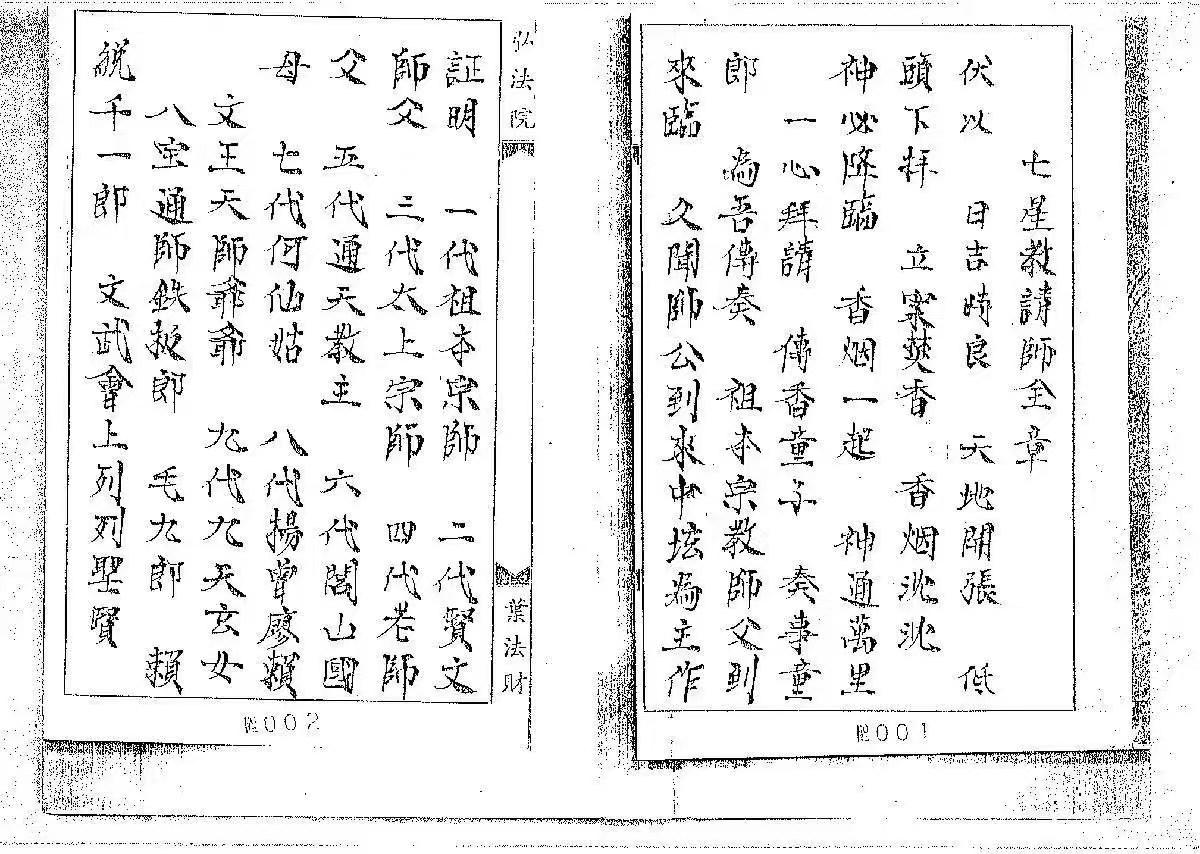 七星教請師全章
伏以 日吉時良 天地開張 低
頭下拜 立案焚香 香烟沈沈
神必降臨 香烟一起 神通萬里
一心拜請 傳香童子 奏事童
郎 為吾傳奏 祖本宗教師父到
來臨 久聞師公到來中坛為主作
001
弘法院
葉法財
証明 一代祖本宗師 二代賢文
師父 三代太上宗師 四代老師
父 五代通天教主 六代閭山國
母 七代何仙姑 八代揚曾廖賴
文王天師爺爺 九代九天玄女
八宝通師鉄板郎 毛九郎 賴
千一郎 文武會上列列聖賢
002